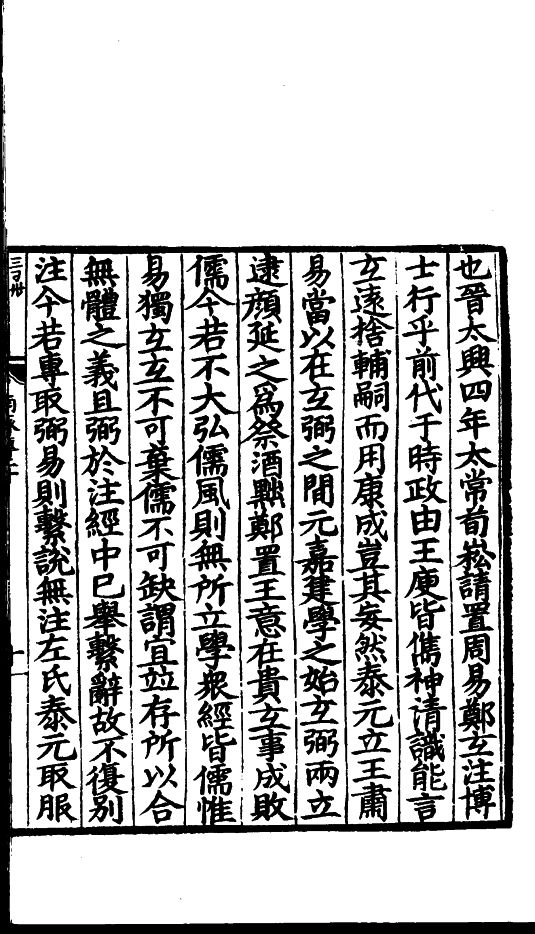 也晉太興四年太常荀崧請置周易鄭玄注博
士行乎前代于時政由王庾皆儁神清識能言
玄遠捨輔嗣而用康成豈其妄然泰元立王肅
易當以在玄弼之間元嘉建學之始玄弼兩立
逮顏延之為祭酒黜鄭置王意在貴玄事成敗
儒今若不大弘儒風則無所立學衆經皆儒惟
易獨玄玄不可棄儒不可缺謂宜竝存所以合
無體之義且弼於注經中已舉繫辭故不復別
注今若專取弼易則繫說無注左氏泰元取服
三百卅